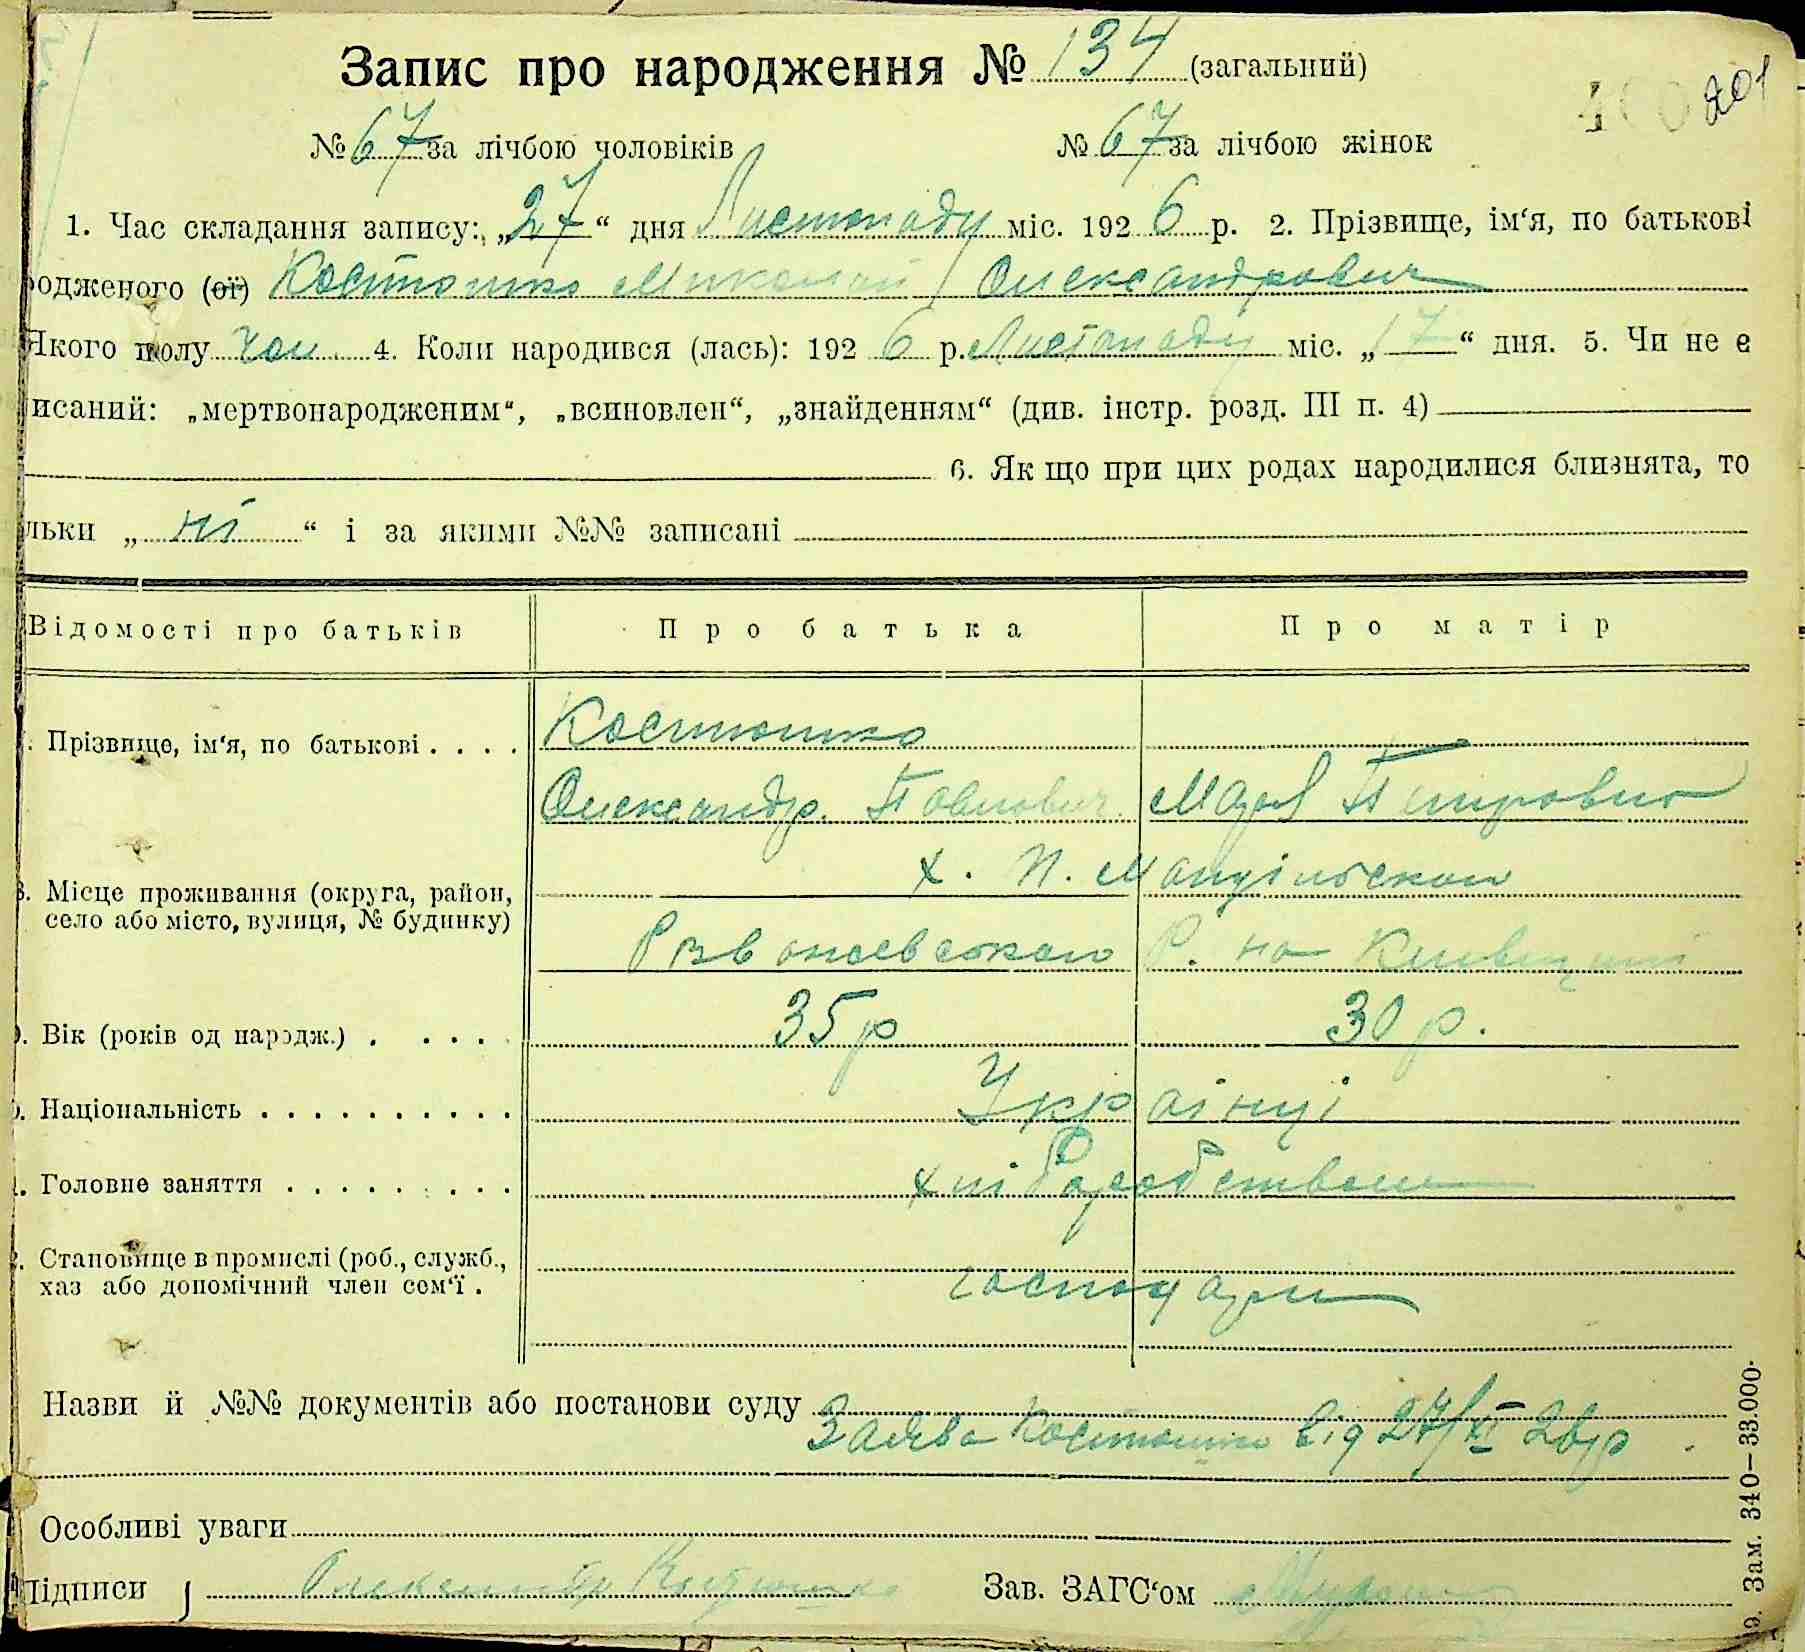 Запис про народження № 134 (загальний)
201
№ 67 за лічбою чоловіків № 67 за лічбою жінок
1. Час складання запису: „27“ дня Листопаду міс. 1926 р. 2. Прізвище, ім‘я, по батькові
одженого (ої) Костюшко Миколай Олександрович
Якого полу чол 4. Коли народився (лась): 1926 р. Листопаду міс. „17“ дня. 5. Чи не є
исаний: „мертвонародженим“, „всиновлен“, „знайденням“ (див. інстр. розд. III п. 4)
6. Як що при цих родах народилися близнята, то
льки „ні“ і за якими №№ записані
Відомості про батьків Про батька Про матір
Прізвище, ім‘я, по батькові . . . . Костюшко
Олександр. Павлович Марія Петровна
Місце проживання (округа, район, х. П.
село або місто, вулиця, № будинку)
Розважевського Р. на Київщині
Вік (років од народж.) . . . . . 35 р 30 р.
Національність . . . . . . . . . . Українці
Головне заняття . . . . . . . . . хліборобством
Становище в промислі (роб., служб.,
хаз або допомічний член сем‘ї . господари
Назви й №№ документів або постанови суду
Заява Костюшка від 27/XI 26 р.
Особливі уваги
Підписи Олександр Костюшко Зав. ЗАГС‘ом
Зам. 340—33.000.